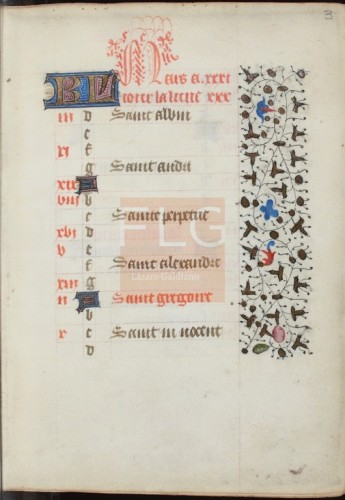 3
Mars a .xxxi
KL iours la lune xxx
iii d Saint albin
e
xi f
g Saint
xix A
viii b
c Sainte perpetue
xvi d
v e
f Saint alexandre
xiii g
ii A Saint gregoire
b
x c Saint in nocent
d
FLG
Lázaro Galdiano